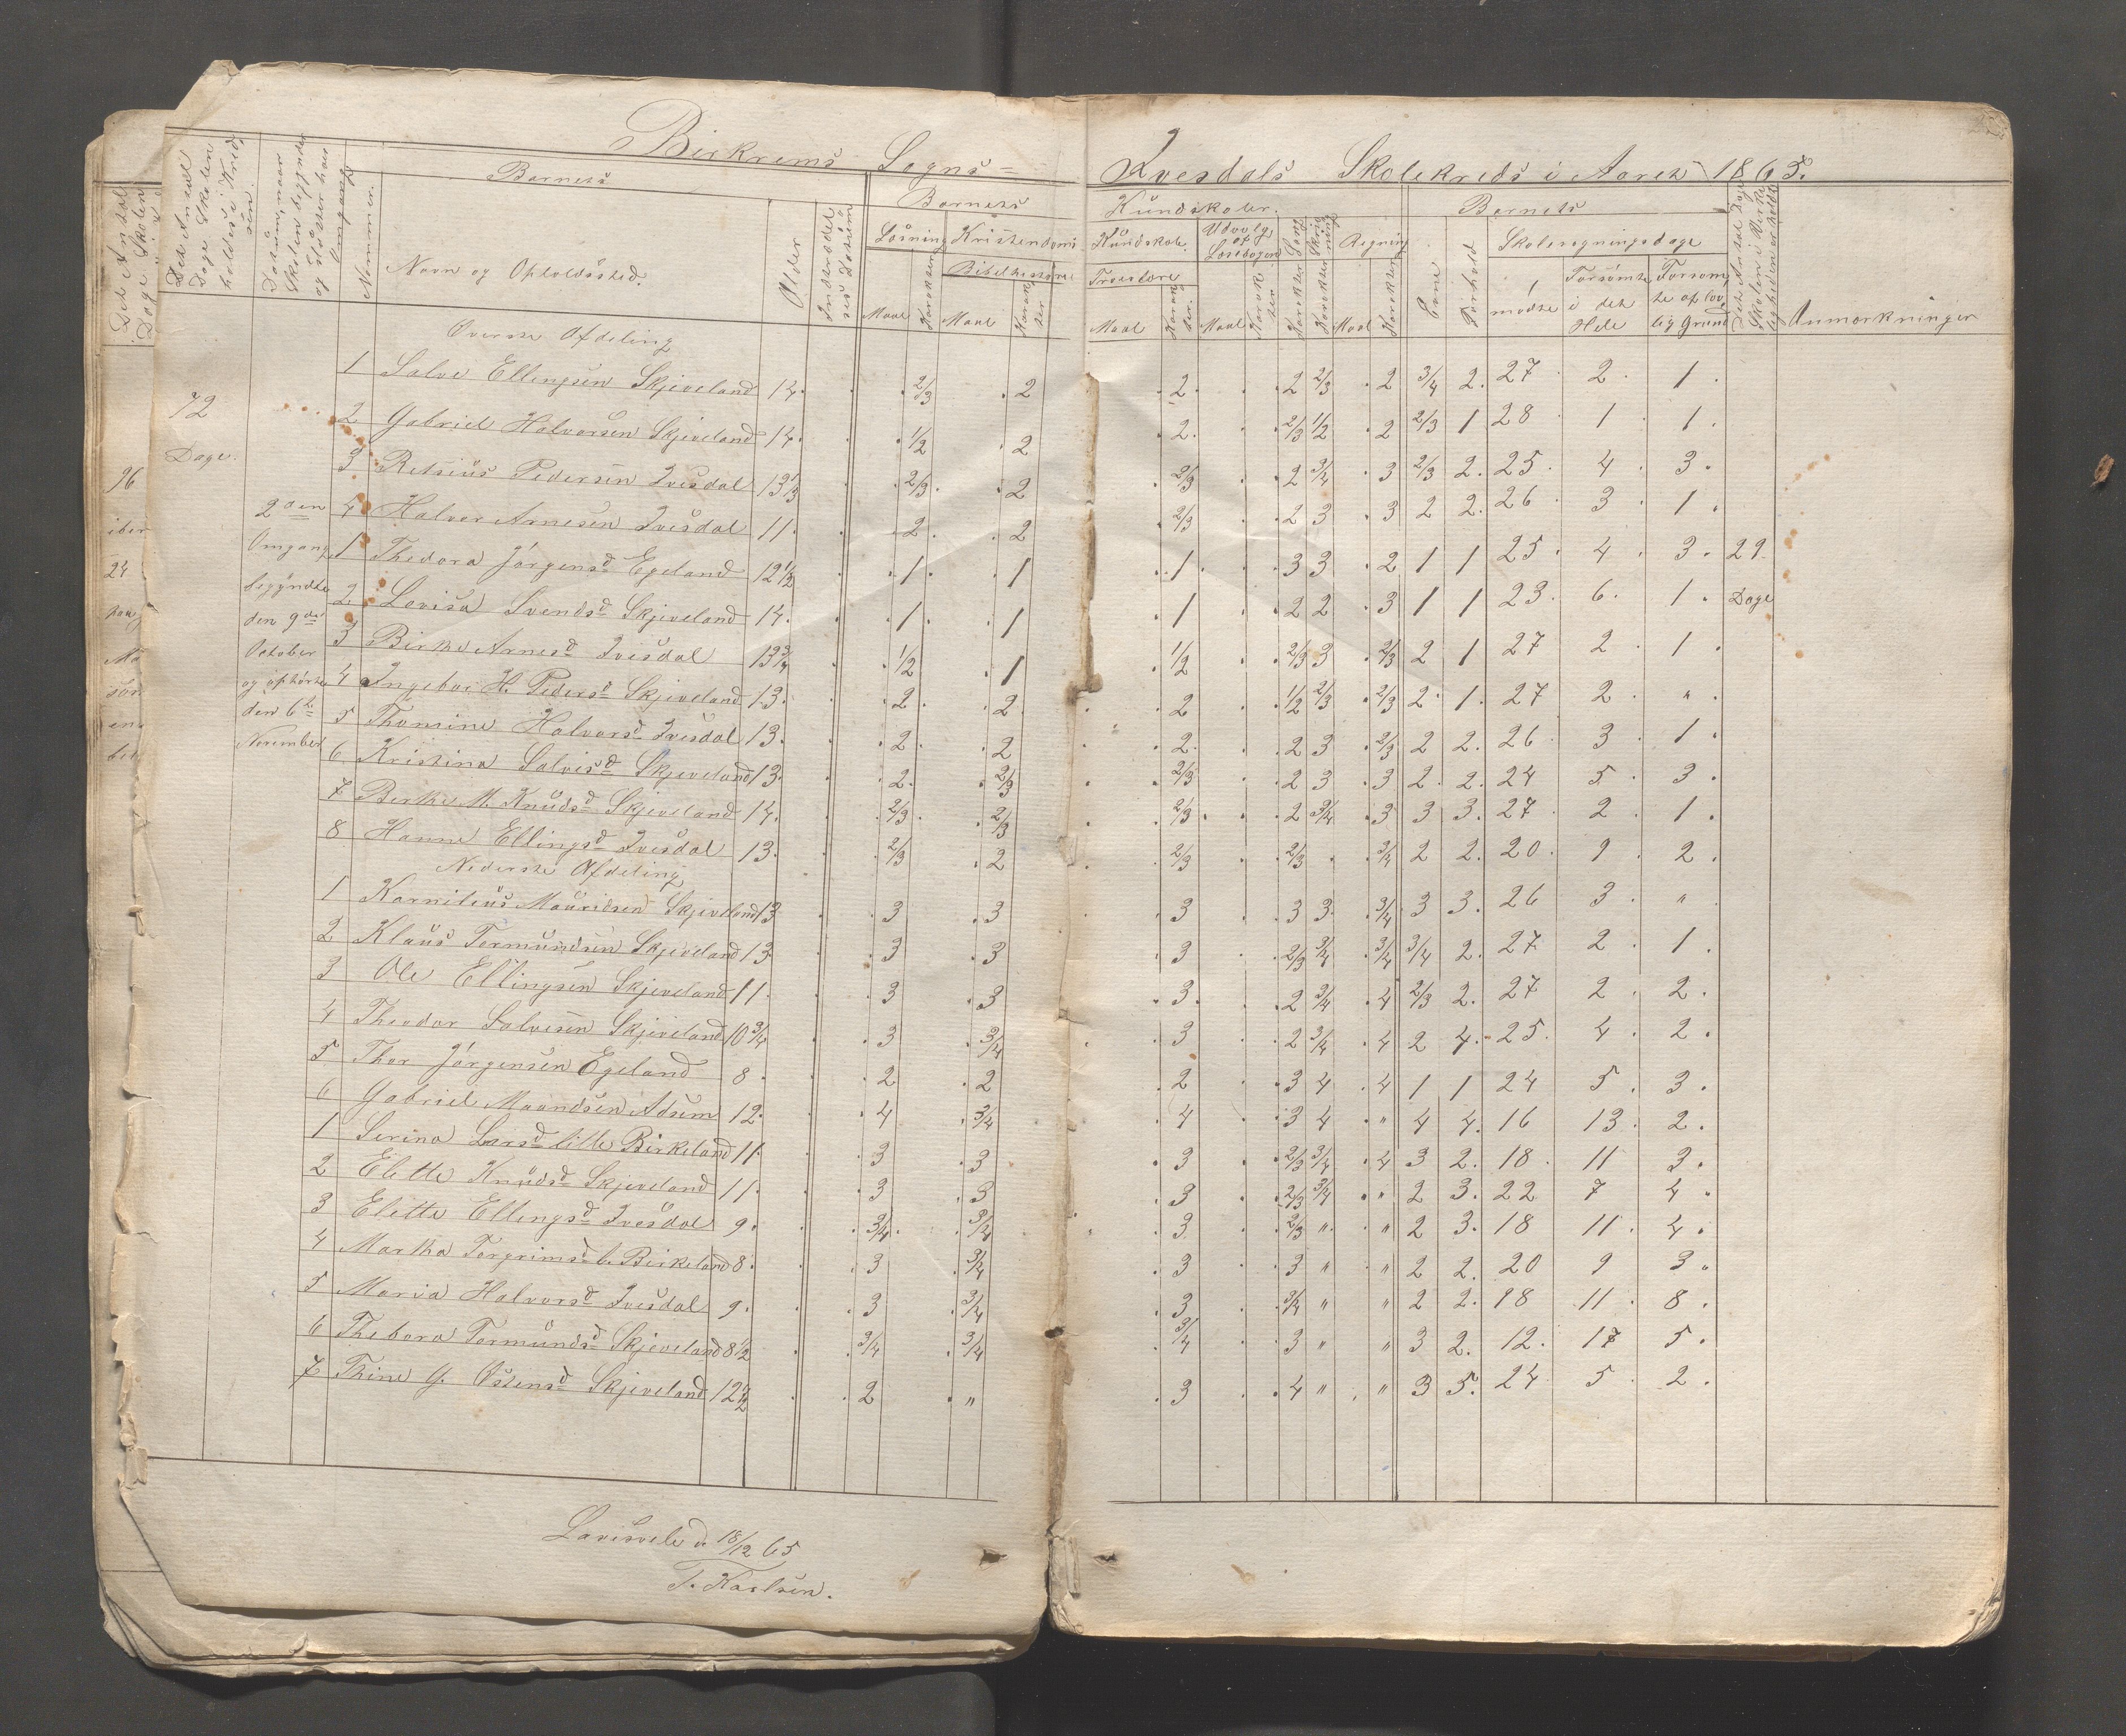 Birkrems Sogns=
Ivesdals Skolekreds i Aaret 1865.
Det Antal Dage Skolen
Det Antal Dage Skolen holdes i Kredsen.
Datum, naar Skolen begynder og slutter hver Omgang
Nummer.
Barnets
Navn og Opholdssted.
Alder
Indtrædelses Datum
Barnets
Læsning
Kristendoms
Bibelhistorie
Maal Karakter Maal Karakter
Kundskaber.
Kundskab.
Troeslære
Udvalg af Læsebogen
Sang
Skrivning
Regning
Maal Karakter. Maal Karakter Karakter Karakter Maal Karakter
Barnets
Evne
Forhold
Skolesøgningsdage
mødte
Forsømte i det Hele
Forsømte af lovlig Grund
Det Antal Dage Skolen i Virkeligheden er holdt
Anmærkninger
Øverste Afdeling
1 Salve Ellingsen Skjeveland 14. 2/3 2 2. 2 2/3 2 3/4 2. 27 2 1
72 Dage.
2 Gabriel Halvorsen Skjeveland 14. 1/2 2 2. 2/3 1/2 2 2/3 1 28 1 1
3 Retsius Pedersen Ivesdal 13 1/3 2/3 2 2/3 2 3/4 3 2/3 2. 25 4 3
4 Halvor Arnesen Ivesdal 11. 2 2 2/3 2 3 3 2 2. 26 3 1
2den Omgang begyndte den 9de October og ophørte den 6te November
1 Thedora Jørgensd Egeland 12 1/2 1 1 1 3 3 2 1 1 25 4 3 29 Dage
2 Lovisa Svendsd Skjeveland 14. 1 1 1 2 2 3 1 1 23 6 1
3 Birthe Arnesd Ivesdal 13 3/4 1/2 1 1/2 2/3 3 2/3 2 1 27 2 1
4 Ingebor H. Pedersd Skjeveland 13. 2 2 2 1/2 2/3 2/3 2 1. 27 2 "
5 Thomine Halvorsd Ivesdal 13. 2 2 2. 2 3 2/3 2 2. 26 3 1
6 Kristina Salvesd Skjeveland 13. 2. 2/3 2/3 2 3 3 2 2. 24 5 3
7 Berthe M. Knudsd Skjeveland 14. 2/3 2/3 2/3 2 3/4 3 3 3. 27 2 1
8 Hanne Ellingsd Ivesdal 13. 2/3 2 2/3 2/3 3/4 2 2. 20 9 2
Nederste Afdeling
1 Karnilius Mauridsen Skjeveland 13 3 3 3 3 3 3/4 3 3. 26 3 "
2 Klaus Tormundsen Skjeveland 13 3 3 3 2/3 3/4 3/4 3/4 2. 27 2 1
3 Ole Ellingsen Skjeveland 11. 3 3 3. 2 3/4 4 2/3 2. 27 2 2
4 Theodor Salvesen Skjeveland 10 3/4 3 3/4 3 2 3/4 4 2 4. 25 4 2
5 Thor Jørgensen Egeland 8. 2 2 2 3 4 4 1 1 24 5 3
6 Gabriel Maandsen Adsem 12. 4 3/4 4 3 4 " 4 4. 16 13 2
1 Serina Larsd lille Birkeland 11. 3 3 3 2/3 3/4 4 3 2. 18 11 3
2 Elette Knudsd Skjeveland 11. 3 3 3 2/3 3/4 " 2 3. 22 7 4
3 Elitte Ellingsd Ivesdal 9. 3/4 3/4 3 2/3 " " 2 3. 18 11 4
4 Martha Torgrimsd l. Birkeland 8. 3 3/4 3 3 " " 2 2. 20 9 3
5 Maria Halvorsd Ivesdal 9. 3 3/4 3 3/4 " " 2 2. 18 11 8
6 Thebora Tormundsd Skjeveland 8 1/2 3/4 3/4 3/4 3 " " 3 2. 12. 17 5
7 Thine G. Ostensd Skjeveland 12 1/2 2 " 3 4 " " 3 5. 24 5 2
96
24
Lavisvele d. 18/12 65
T. Karlsen.